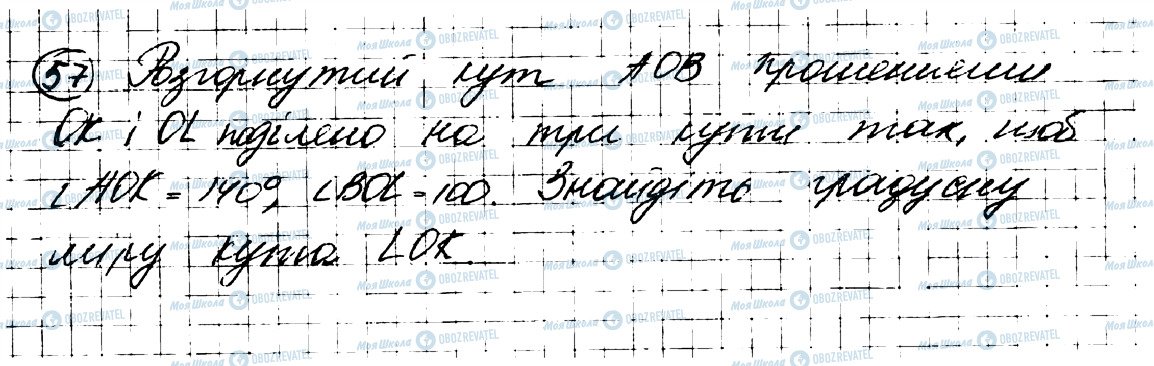 57 Розгорнутий кут АОВ променями
ОК і OL поділено на три кути так, щоб
∠АОК = 140°, ∠BOL = 100. Знайдіть градусну
міру кута LOK.